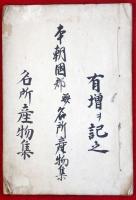 有増ヲ記之
本朝國郡並名所産物集
名所産物集